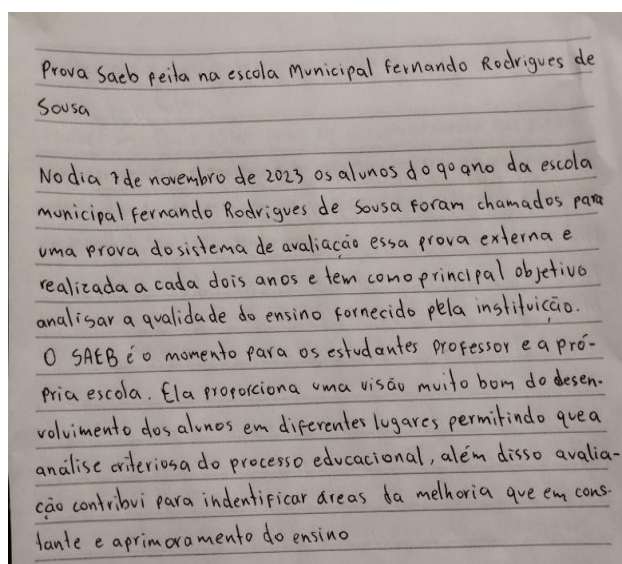 Prova Saeb feita na escola Municipal Fernando Rodrigues de
Sousa
No dia 7 de novembro de 2023 os alunos do 9o ano da escola
municipal Fernando Rodrigues de Sousa Foram chamados para
uma prova do sistema de avaliacão essa prova externa e
realizada a cada dois anos e tem como principal objetivo
analisar a qualidade do ensino fornecido pela instituicão.
O SAEB é o momento para os estudantes professor e a pró-
pria escola. Ela proporciona uma visão muito bom do desen-
volvimento dos alunos em diferentes lugares permitindo que a
análise criteriosa do processo educacional, além disso avalia-
cão contribui para indentificar áreas da melhoria que em cons-
tante e aprimoramento do ensino